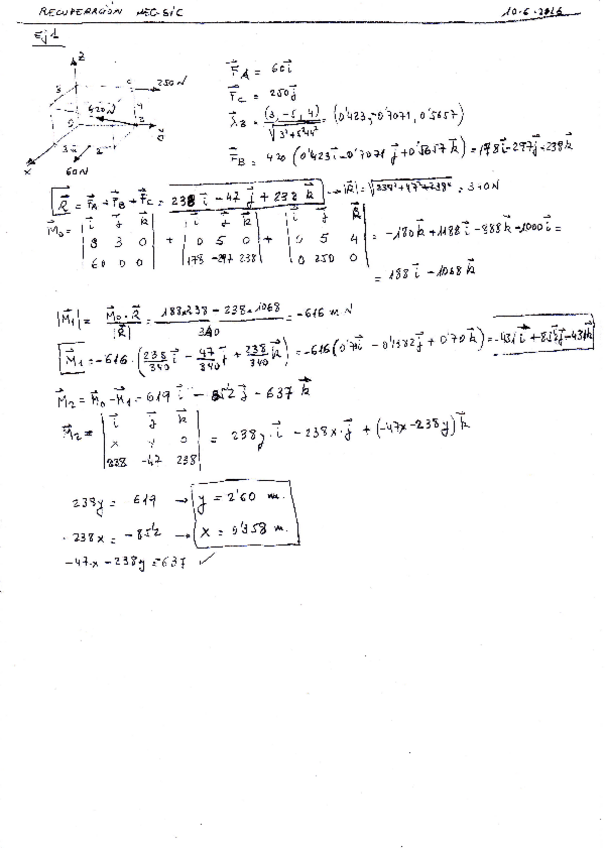 RECUPERACIÓN MEC-SIC 10-6-2016
Ej 1
Z
3
C
250N
420N
4
O
3
2
X
60N
F⃗A = 60i⃗
F⃗C = 250j⃗
λ⃗B = (3, -5, 4) / √(3²+5²+4²) = (0'423, -0'7071, 0'5657)
F⃗B = 420 (0'423i⃗ - 0'7071j⃗ + 0'5657k⃗) = 178i⃗ - 297j⃗ + 238k⃗
R⃗ = F⃗A + F⃗B + F⃗C = 238 i⃗ - 47 j⃗ + 238 k⃗ → |R⃗| = √(238²+47²+238²) = 340N
M⃗0 = | i⃗ j⃗ k⃗ | + | i⃗ j⃗ k⃗ | + | i⃗ j⃗ k⃗ |
3 0 | 0 5 0 | 0 5 4 = -180k⃗ + 1188i⃗ - 888k⃗ - 1000i⃗ =
60 0 0 | 178 -297 238 | 0 250 0
= 188i⃗ - 1068k⃗
|M⃗1| = M⃗0 · R⃗ / |R⃗| = 188×238 - 238×1068 / 340 = -616 m N
M⃗1 = -616 · (238/340 i⃗ - 47/340 j⃗ + 238/340 k⃗) = -616 (0'7i⃗ - 0'1382j⃗ + 0'70k⃗) = -431i⃗ + 85'2j⃗ - 431k⃗
M⃗2 = M⃗0 - M⃗1 = 619 i⃗ - 85'2 j⃗ - 637 k⃗
M⃗2 = | i⃗ j⃗ k⃗ |
| x y 0 | = 238y · i⃗ - 238x · j⃗ + (-47x - 238y) k⃗
| 238 -47 238 |
238y = 619 → y = 2'60 m.
-238x = -85'2 → x = 0'358 m.
-47x - 238y = -637 ✓